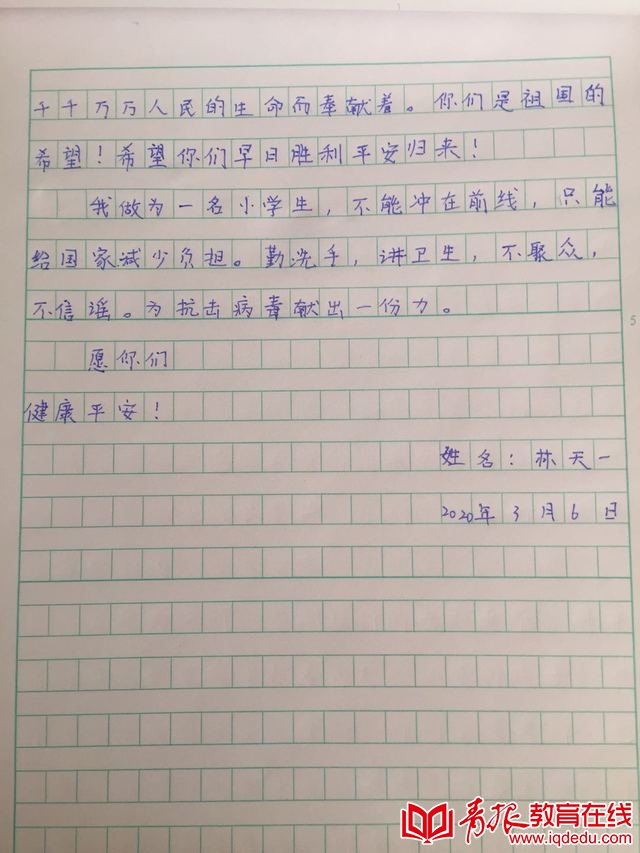 千千万万人民的生命而奉献着。你们是祖国的
希望！希望你们早日胜利平安归来！
我做为一名小学生，不能冲在前线，只能
给国家减少负担。勤洗手，讲卫生，不聚众，
不信谣。为抗击病毒献出一份力。
愿你们
健康平安！
姓名：林天一
2020年3月6日
5
青报教育在线
www.iqdedu.com